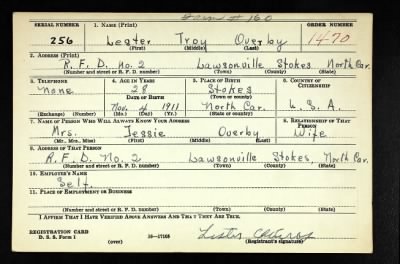 Form # 160
SERIAL NUMBER 1. NAME (Print) ORDER NUMBER
256 Lester Troy Overby 1470
(First) (Middle) (Last)
2. ADDRESS (Print)
R.F.D. No. 2 Lawsonville Stokes North Car.
(Number and street or R. F. D. number) (Town) (County) (State)
3. TELEPHONE 4. AGE IN YEARS 5. PLACE OF BIRTH 6. COUNTRY OF CITIZENSHIP
None 28 Stokes
DATE OF BIRTH (Town or county)
Nov. 4 1911 North Car. U.S.A.
(Exchange) (Number) (Mo.) (Day) (Yr.) (State or country)
7. NAME OF PERSON WHO WILL ALWAYS KNOW YOUR ADDRESS 8. RELATIONSHIP OF THAT PERSON
Mrs. Jessie Overby Wife
(Mr., Mrs., Miss) (First) (Middle) (Last)
9. ADDRESS OF THAT PERSON
R.F.D. No. 2 Lawsonville Stokes, North Car.
(Number and street or R. F. D. number) (Town) (County) (State)
10. EMPLOYER'S NAME
Self.
11. PLACE OF EMPLOYMENT OR BUSINESS
(Number and street or R. F. D. number) (Town) (County) (State)
I AFFIRM THAT I HAVE VERIFIED ABOVE ANSWERS AND THAT THEY ARE TRUE.
REGISTRATION CARD
D. S. S. Form 1 (over) 16—17105 (Registrant's signature)